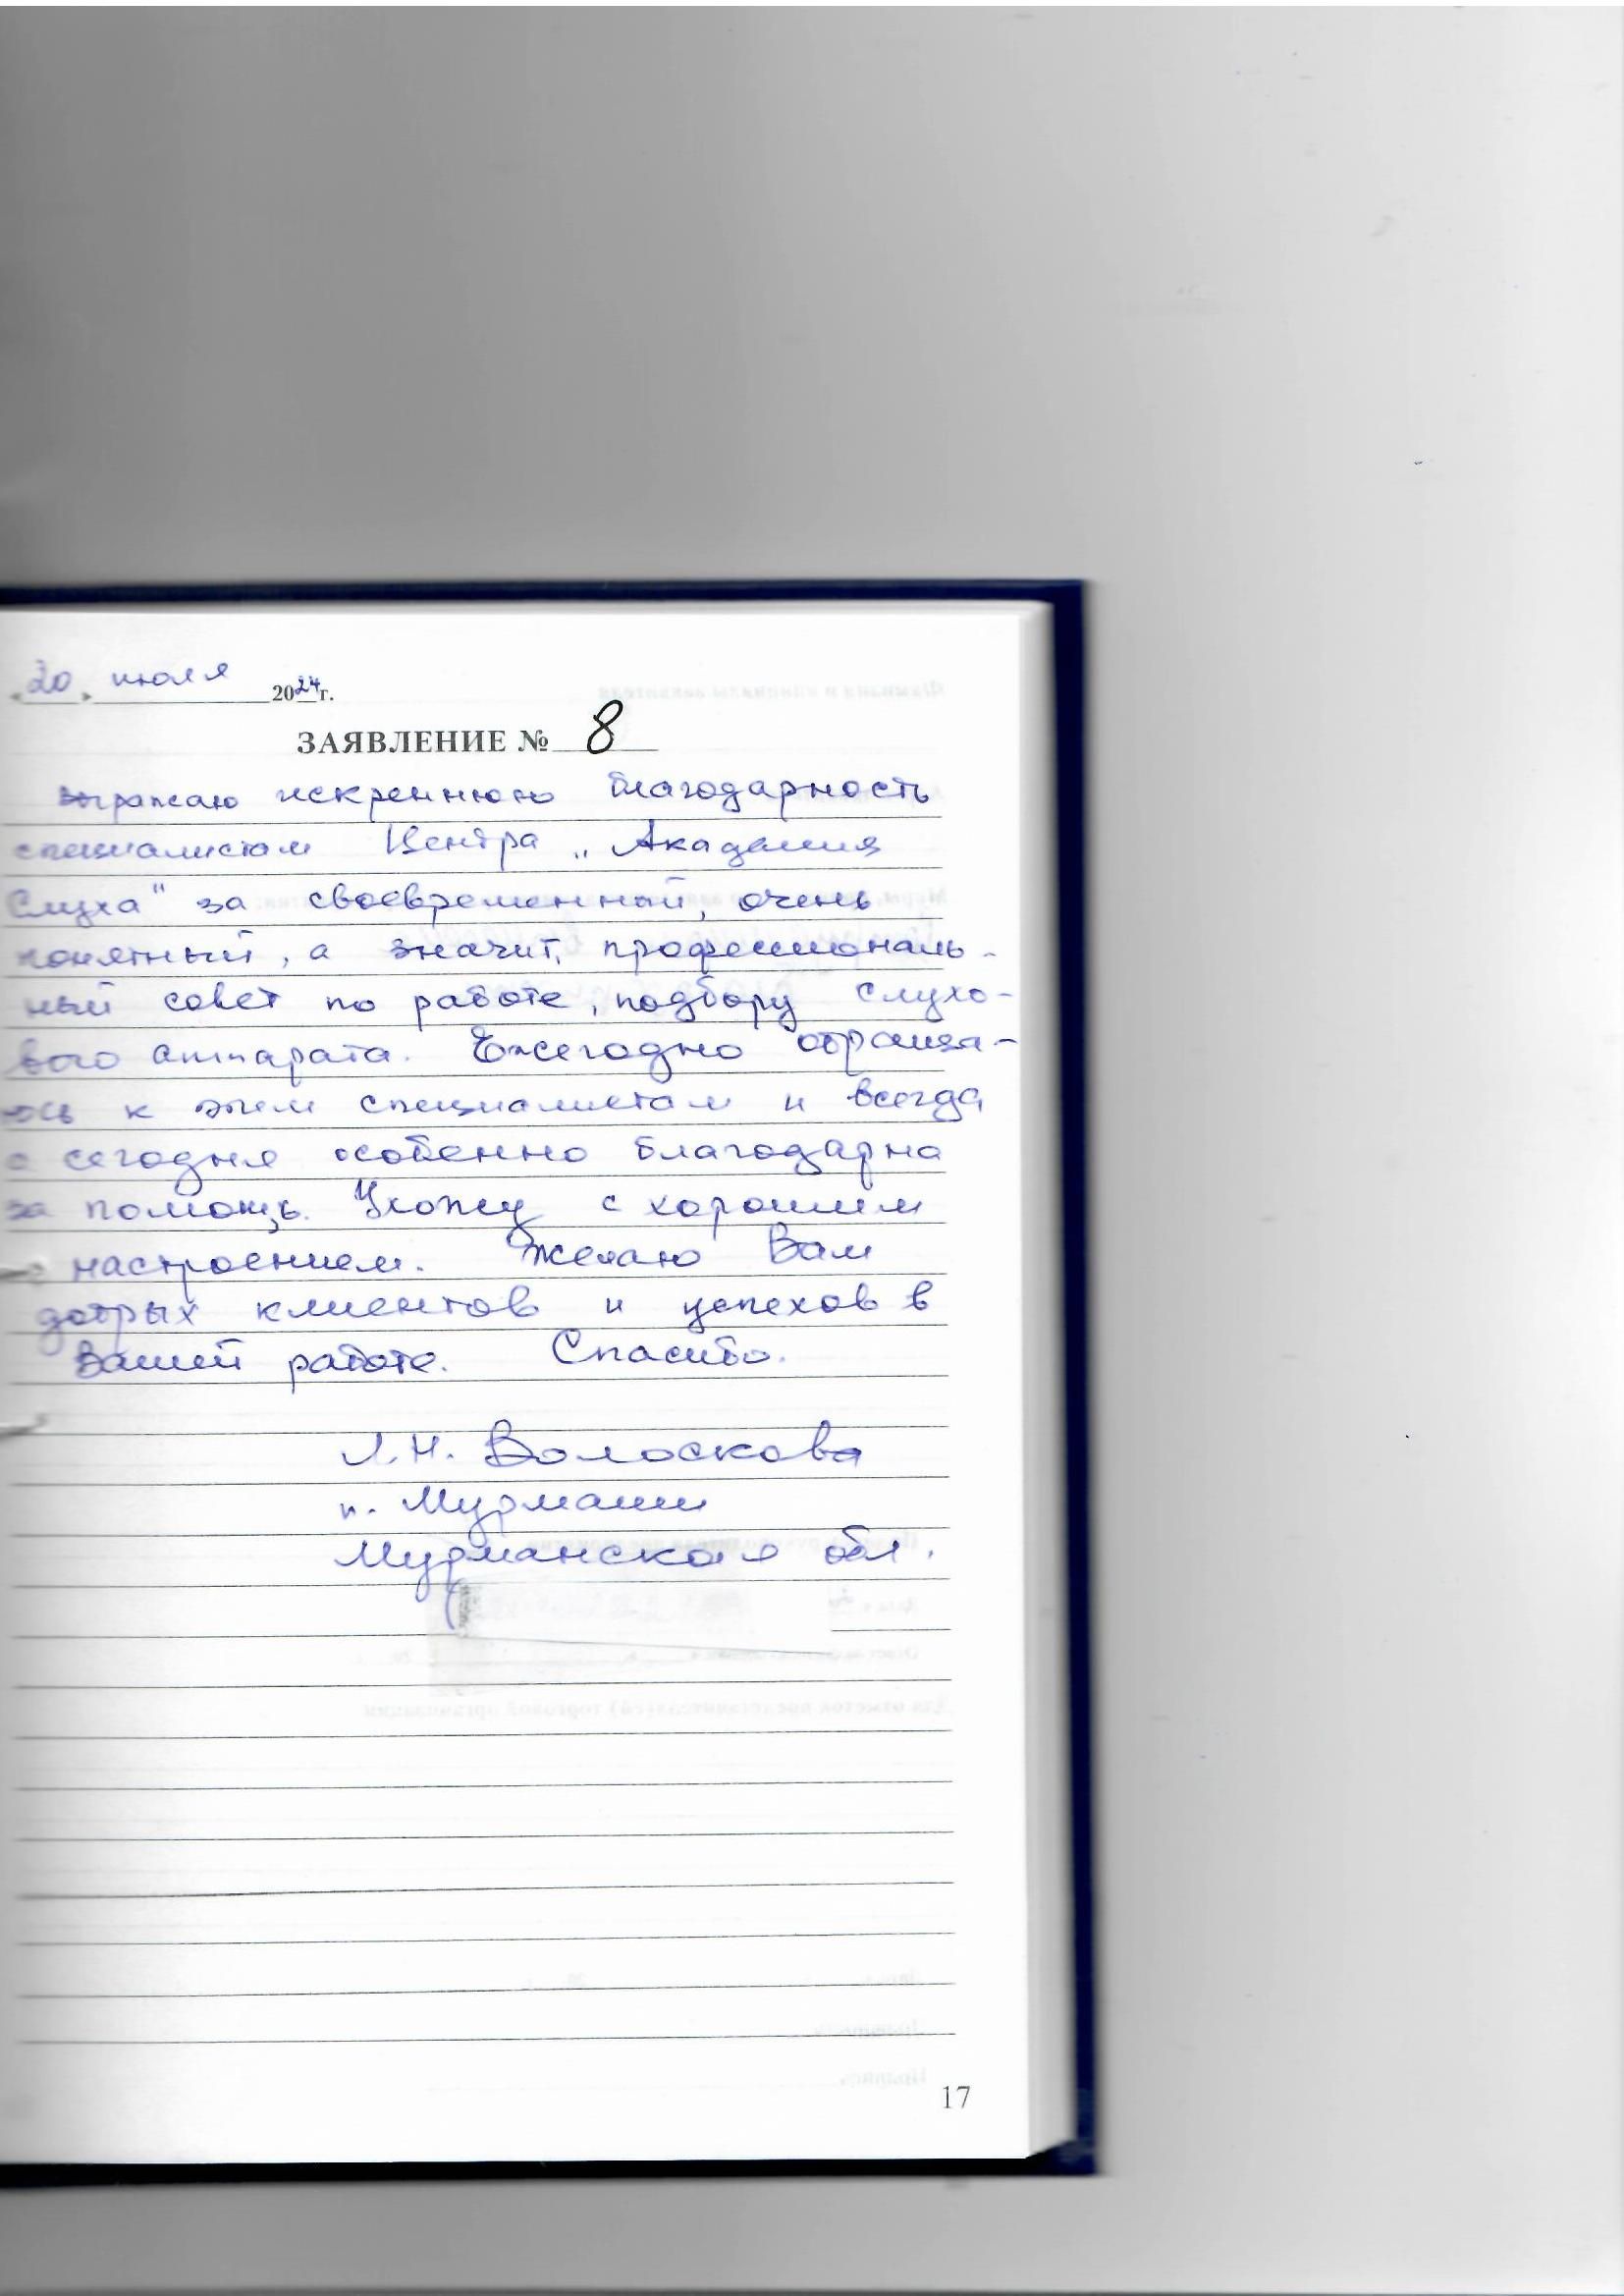 «20» июля 2024 г.
ЗАЯВЛЕНИЕ № 8
Выражаю искреннюю благодарность
специалистам Центра „Академия
Слуха" за своевременный, очень
понятный, а значит, профессиональ-
ный совет по работе, подбору слухо-
вого аппарата. Ежегодно обраща-
юсь к этим специалистам и всегда
сегодня особенно благодарна
за помощь. Ухожу с хорошим
настроением. Желаю Вам
добрых клиентов и успехов в
Вашей работе. Спасибо.
Л.Н. Волоскова
п. Мурмаши
Мурманская обл.
17